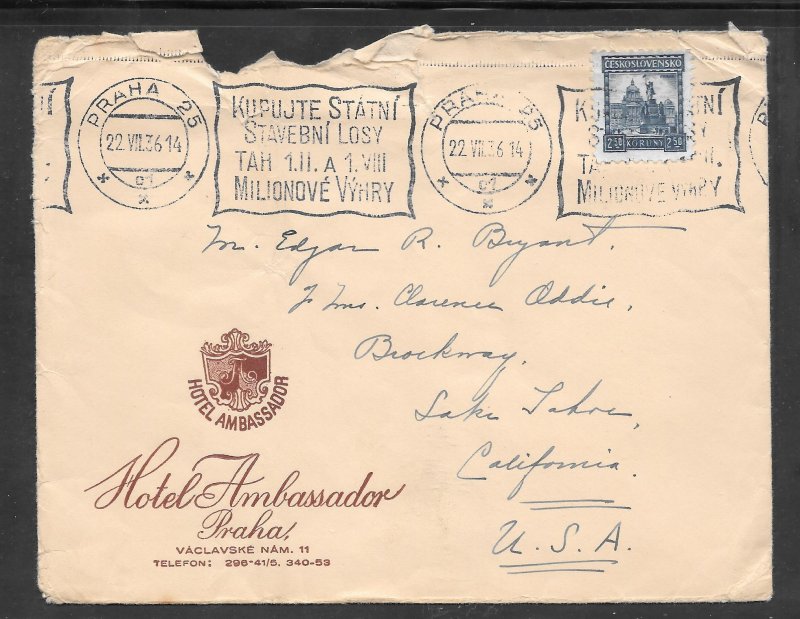 PRAHA 25
22.VII.36 14
KUPUJTE STÁTNÍ
STAVEBNÍ LOSY
TAH 1.II. A 1.VIII
MILIONOVÉ VÝHRY
PRAHA 25
22.VII.36 14
ČESKOSLOVENSKO
2·50 KORUNY 2·50
MILIONOVÉ VÝHRY
Mr. Edgar R. Bryant.
Mrs. Clarence Oddie,
Brockway,
Lake Tahoe,
California.
U. S. A.
HOTEL AMBASSADOR
Hotel Ambassador
Praha,
VÁCLAVSKÉ NÁM. 11
TELEFON: 296-41/5, 340-53